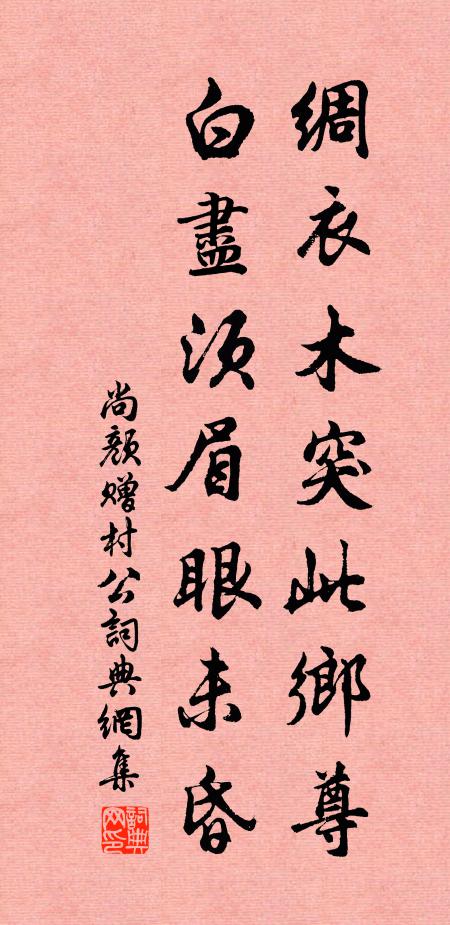 綢衣木突此鄉尊
白盡須眉眼未昏
尚顏贈村公詞典網集
詞典网印